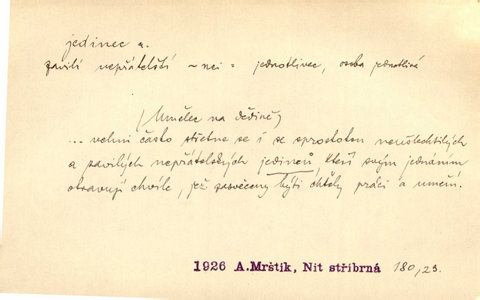 jedinec m.
zavilí nepřátelští ~nci = jednotlivec, osoba jednotlivá
(Umělec na dědině)
... velmi často střetne se i se sprostotou neušlechtilých
a zavilých nepřátelských jedinců, kteří svým jednáním
otravují chvíle, jež zasvěceny býti chtěly práci a umění.
1926 A.Mrštík, Nit stříbrná 180,23.